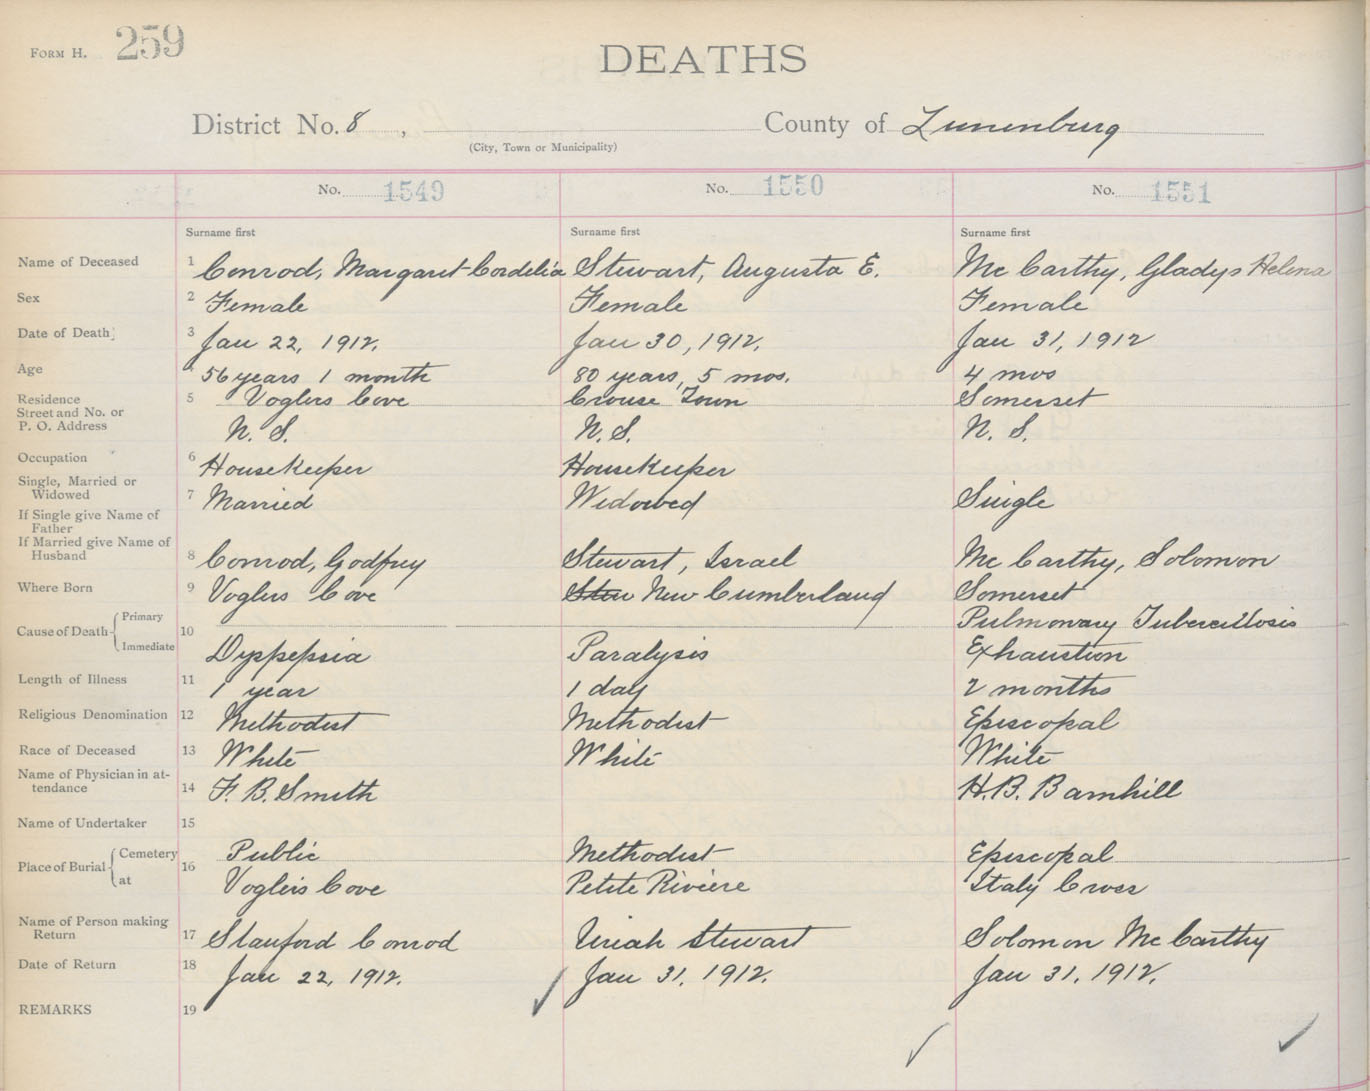 FORM H. 259
DEATHS
District No. 8 , County of Lunenburg
(City, Town or Municipality)
No. 1549 No. 1550 No. 1551
Surname first Surname first Surname first
Name of Deceased 1 Conrod, Margaret Cordelia Stewart, Augusta E. Mc Carthy, Gladys Helena
Sex 2 Female Female Female
Date of Death 3 Jan 22, 1912. Jan 30, 1912. Jan 31, 1912
Age 4 56 years 1 month 80 years, 5 mos. 4 mos
Residence 5 Voglers Cove Crouse Town Somerset
Street and No. or
P. O. Address N. S. N. S. N. S.
Occupation 6 Housekeeper Housekeeper
Single, Married or
Widowed 7 Married Widowed Single
If Single give Name of
Father
If Married give Name of
Husband 8 Conrod, Godfrey Stewart, Israel Mc Carthy, Solomon
Where Born 9 Voglers Cove Stew New Cumberland Somerset
Cause of Death Primary 10 Pulmonary Tuberculosis
Immediate Dyspepsia Paralysis Exhaustion
Length of Illness 11 1 year 1 day 2 months
Religious Denomination 12 Methodist Methodist Episcopal
Race of Deceased 13 White White White
Name of Physician in at-
tendance 14 F. B. Smith H. B. Barnhill
Name of Undertaker 15
Place of Burial Cemetery 16 Public Methodist Episcopal
at Vogler's Cove Petite Riviere Italy Cross
Name of Person making
Return 17 Stanford Conrod Uriah Stewart Solomon Mc Carthy
Date of Return 18 Jan 22, 1912. Jan 31, 1912. Jan 31, 1912.
REMARKS 19